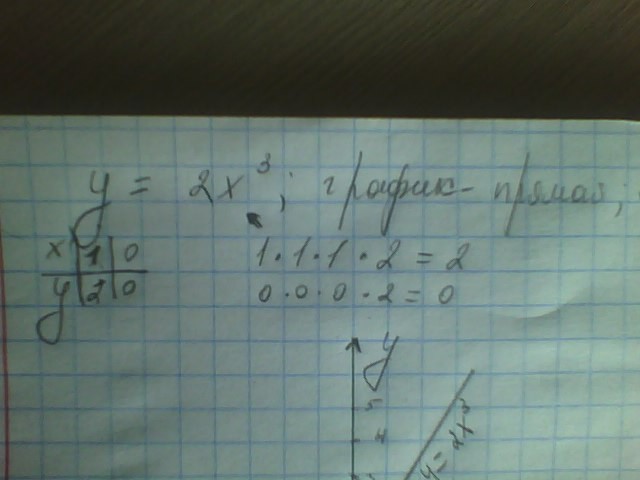 y = 2x³; график - прямая;
x 1 0
y 2 0
1·1·1·2 = 2
0·0·0·2 = 0
y
5
4
y = 2x³